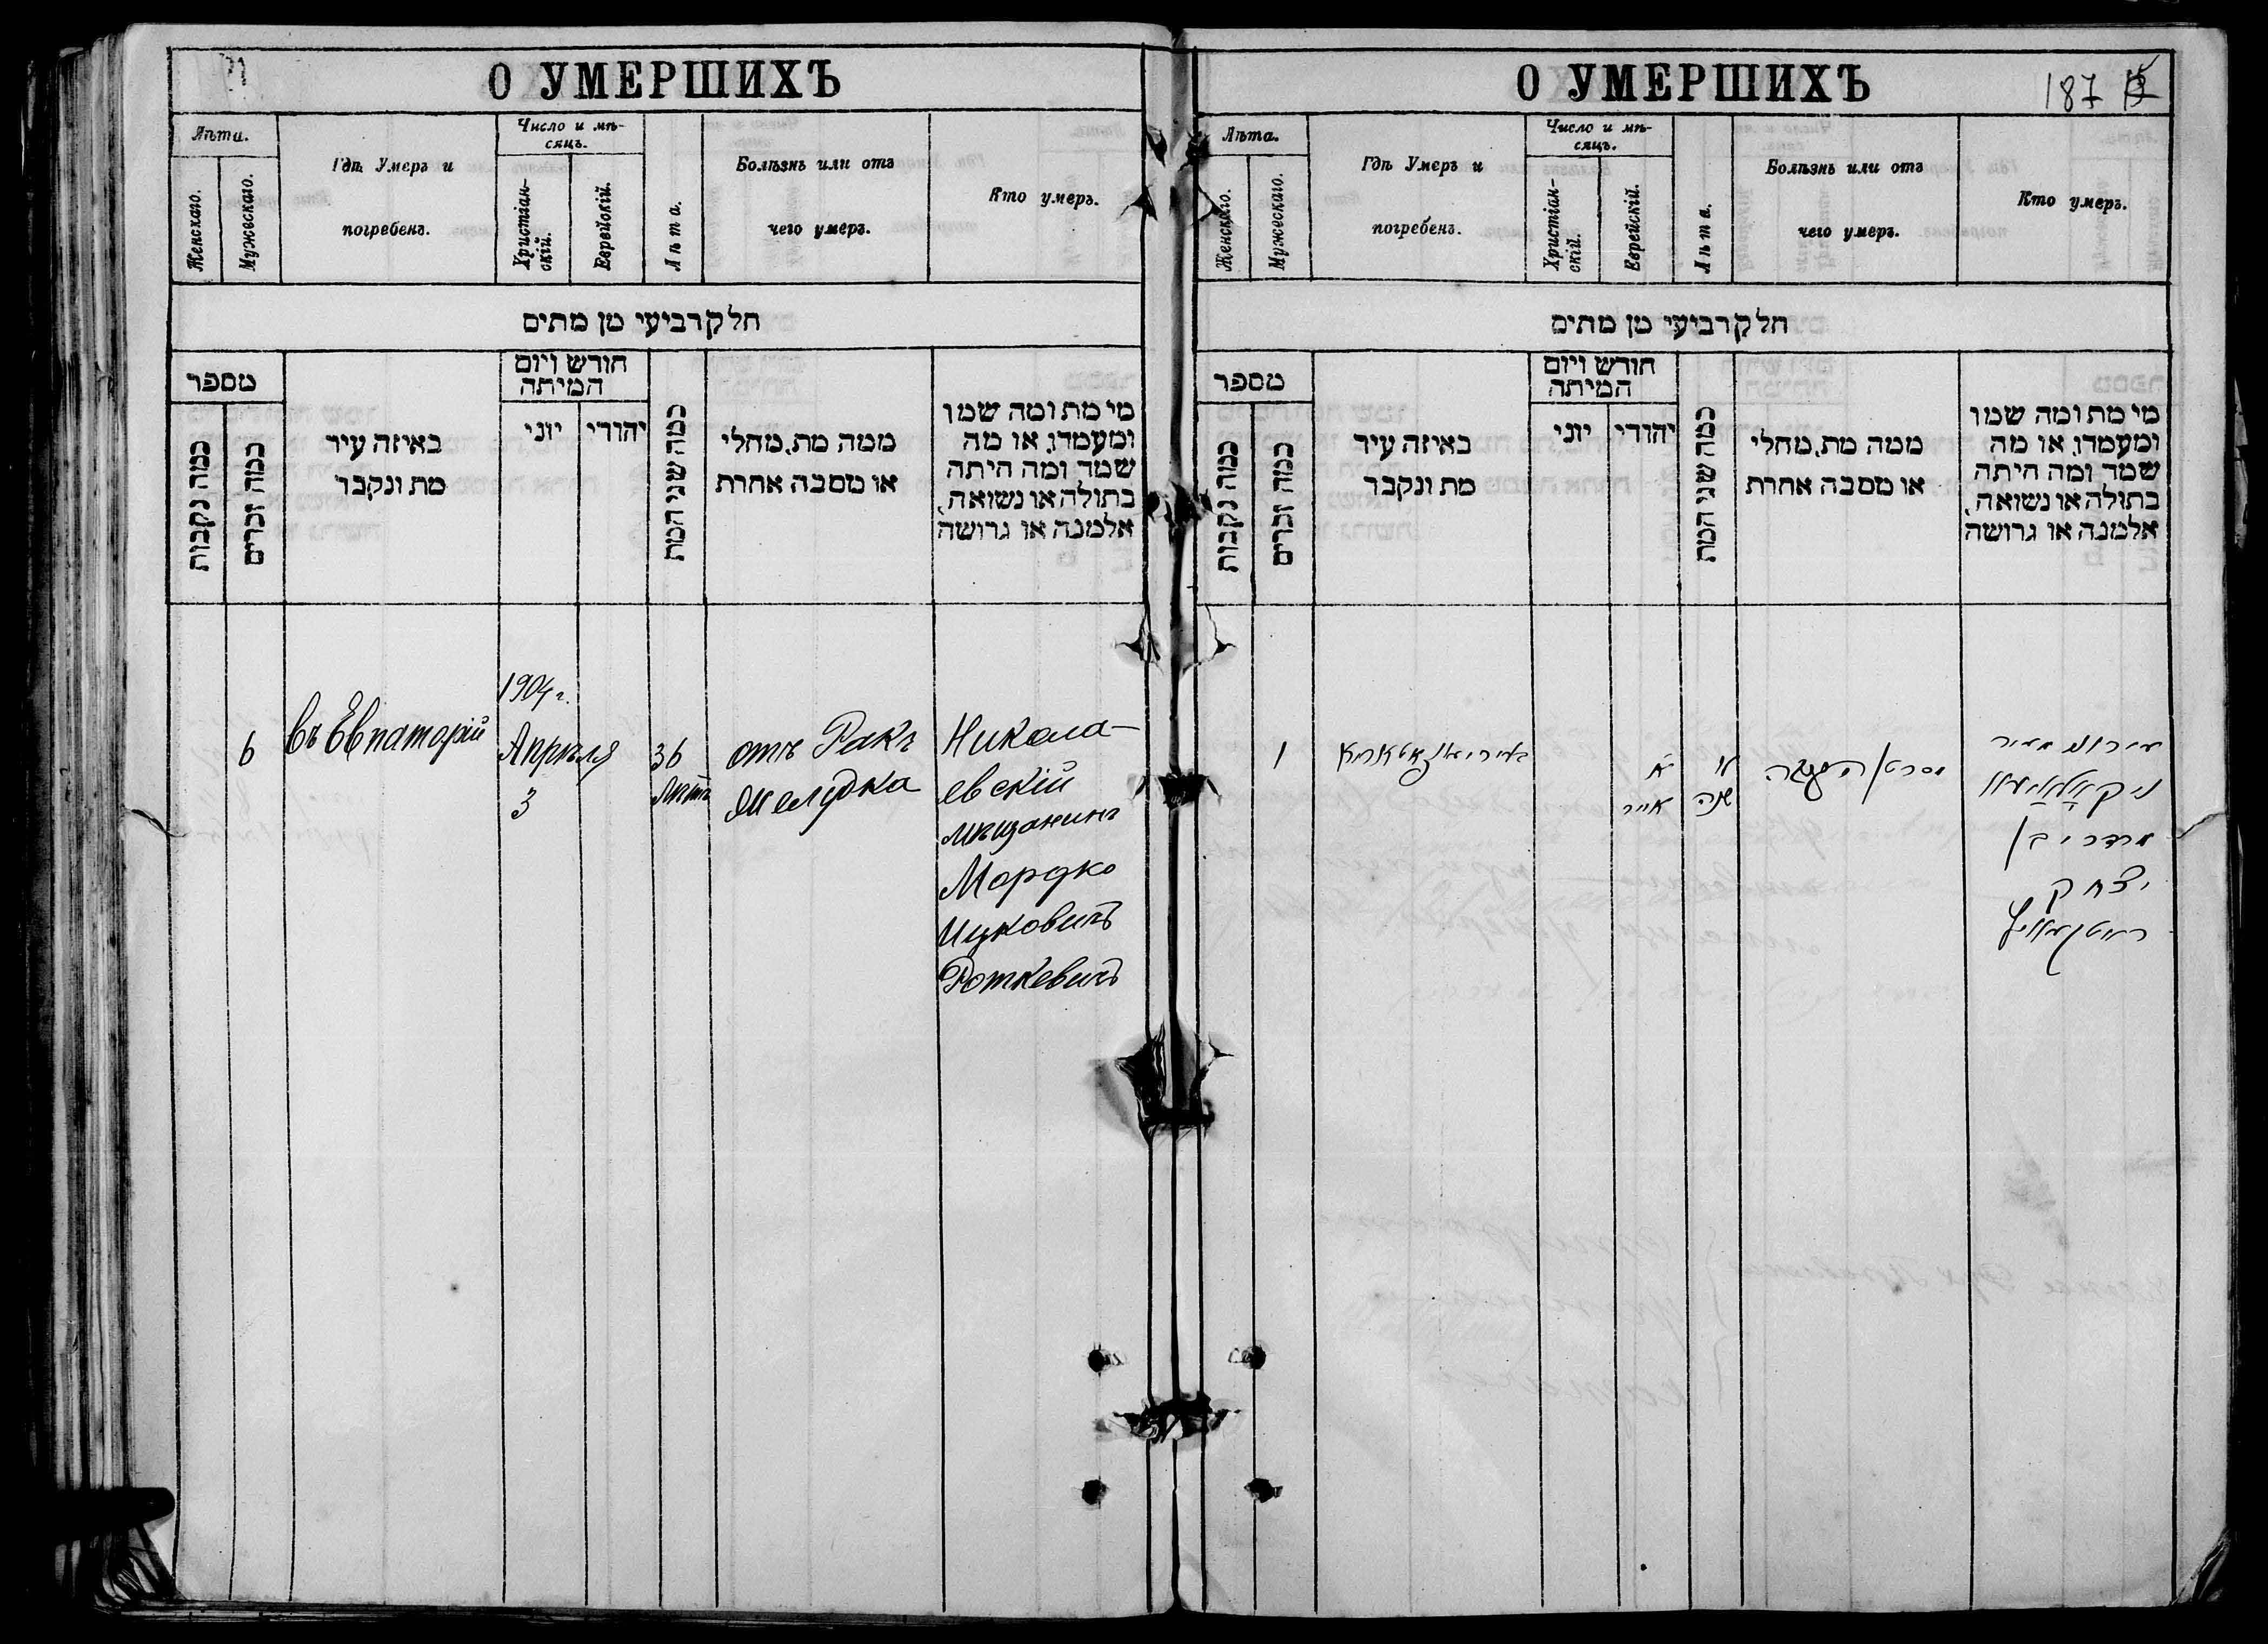 О УМЕРШИХЪ
Лѣта.
Женскаго.
Мужескаго.
Гдѣ Умеръ и
погребенъ.
Число и мѣ-
сяцъ.
Христіан-
скій.
Еврейскій.
Лѣта.
Болѣзнь или отъ
чего умеръ.
Кто умеръ.
חלק רביעי מן מתים
מספר
כמה נקבות
כמה זכרים
באיזה עיר
מת ונקבר
חורש ויום
המיתה
יוני
יהודי
כמה שני המת
ממה מת, מחלי
או מסבה אחרת
מי מת ומה שמו
ומעמדו, או מה
שמה ומה היתה
בתולה או נשואה,
אלמנה או גרושה
6
въ Евпаторій
1904 г.
Апрѣля
3
36
лѣтъ
отъ Ракъ
Желудка
Никола-
евскій
мѣщанинъ
Мордко
Ицковичъ
Роткевичъ
О УМЕРШИХЪ
187
Лѣта.
Женскаго.
Мужескаго.
Гдѣ Умеръ и
погребенъ.
Число и мѣ-
сяцъ.
Христіан-
скій.
Еврейскій.
Лѣта.
Болѣзнь или отъ
чего умеръ.
Кто умеръ.
חלק רביעי מן מתים
מספר
כמה נקבות
כמה זכרים
באיזה עיר
מת ונקבר
חורש ויום
המיתה
יוני
יהודי
כמה שני המת
ממה מת, מחלי
או מסבה אחרת
מי מת ומה שמו
ומעמדו, או מה
שמה ומה היתה
בתולה או נשואה,
אלמנה או גרושה
1
א
אייר
שנה
מרדכי בן
יצחק